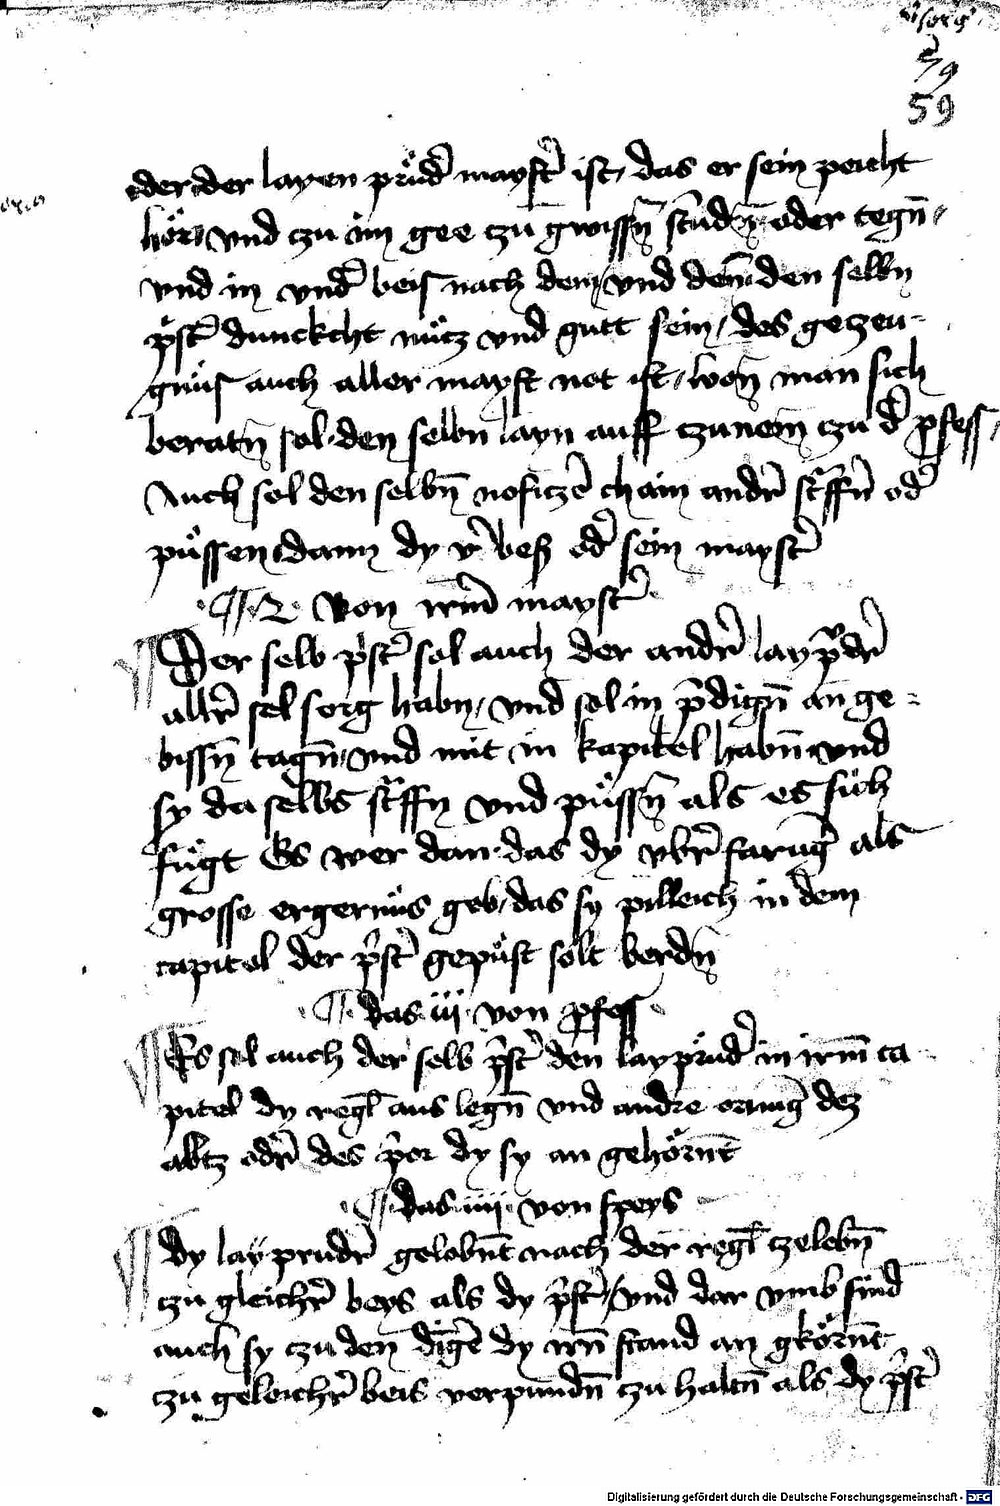 59
oder der layen prüd̄ mayst̄ ist / das er sein peicht
hör vnd czu im gee czu gwissn̄ stūdn̄ oder tegn̄ /
vnd in vnd̄ beis nach dem / vnd dem̄ den selbn
p̄st̄ dunckcht nücz vnd gutt sein / des geczeu-
gnüs auch aller mayst not ist / won̄ man sich
beratn̄ sol den selbn layn auff czunem̄ czu d̄ p̄fess /
Auch sol den selbn̄ nouiczē chain andr̄ strāffn̄ od̄
püssen dann dy v̄ bess od̄ sein mayst̄
¶ 2 Von irm̄ mayst̄
Der selb p̄st̄ sol auch der andr̄ layp̄dr̄
allr̄ sel sorg habn / vnd sol in p̄dign̄ an ge-
bissn̄ tagn̄ / vnd mit in kapitel habn̄ vnd
sy da selbs strāffn vnd püssn̄ als es sich
fügt Es wer dan das dy vbr̄farūg als
grosse ergernüs geb / das sy pilleich in dem
capitel der p̄st̄ gepüst solt berdn̄
¶ das iii von p̄fess
Es sol auch der selb p̄st̄ den layprüd̄ in irm̄ ca
pitel dy regl̄ aus legn̄ vnd andre ornūg dez
abtz odr̄ des p̄or dy sy an gehörn̄t
¶ das iiii von speys
dy layprudr̄ gelobn̄t nach der regl̄ czelebn̄
czu gleichr̄ beys als dy p̄st̄ / vnd dar vmb sind
auch sy czu den dīgē dy irn̄ stand an gkörn̄t
czu geleichr̄ beis verpundn̄ czu haltn̄ als dy p̄st̄
Digitalisierung gefördert durch die Deutsche Forschungsgemeinschaft - DFG